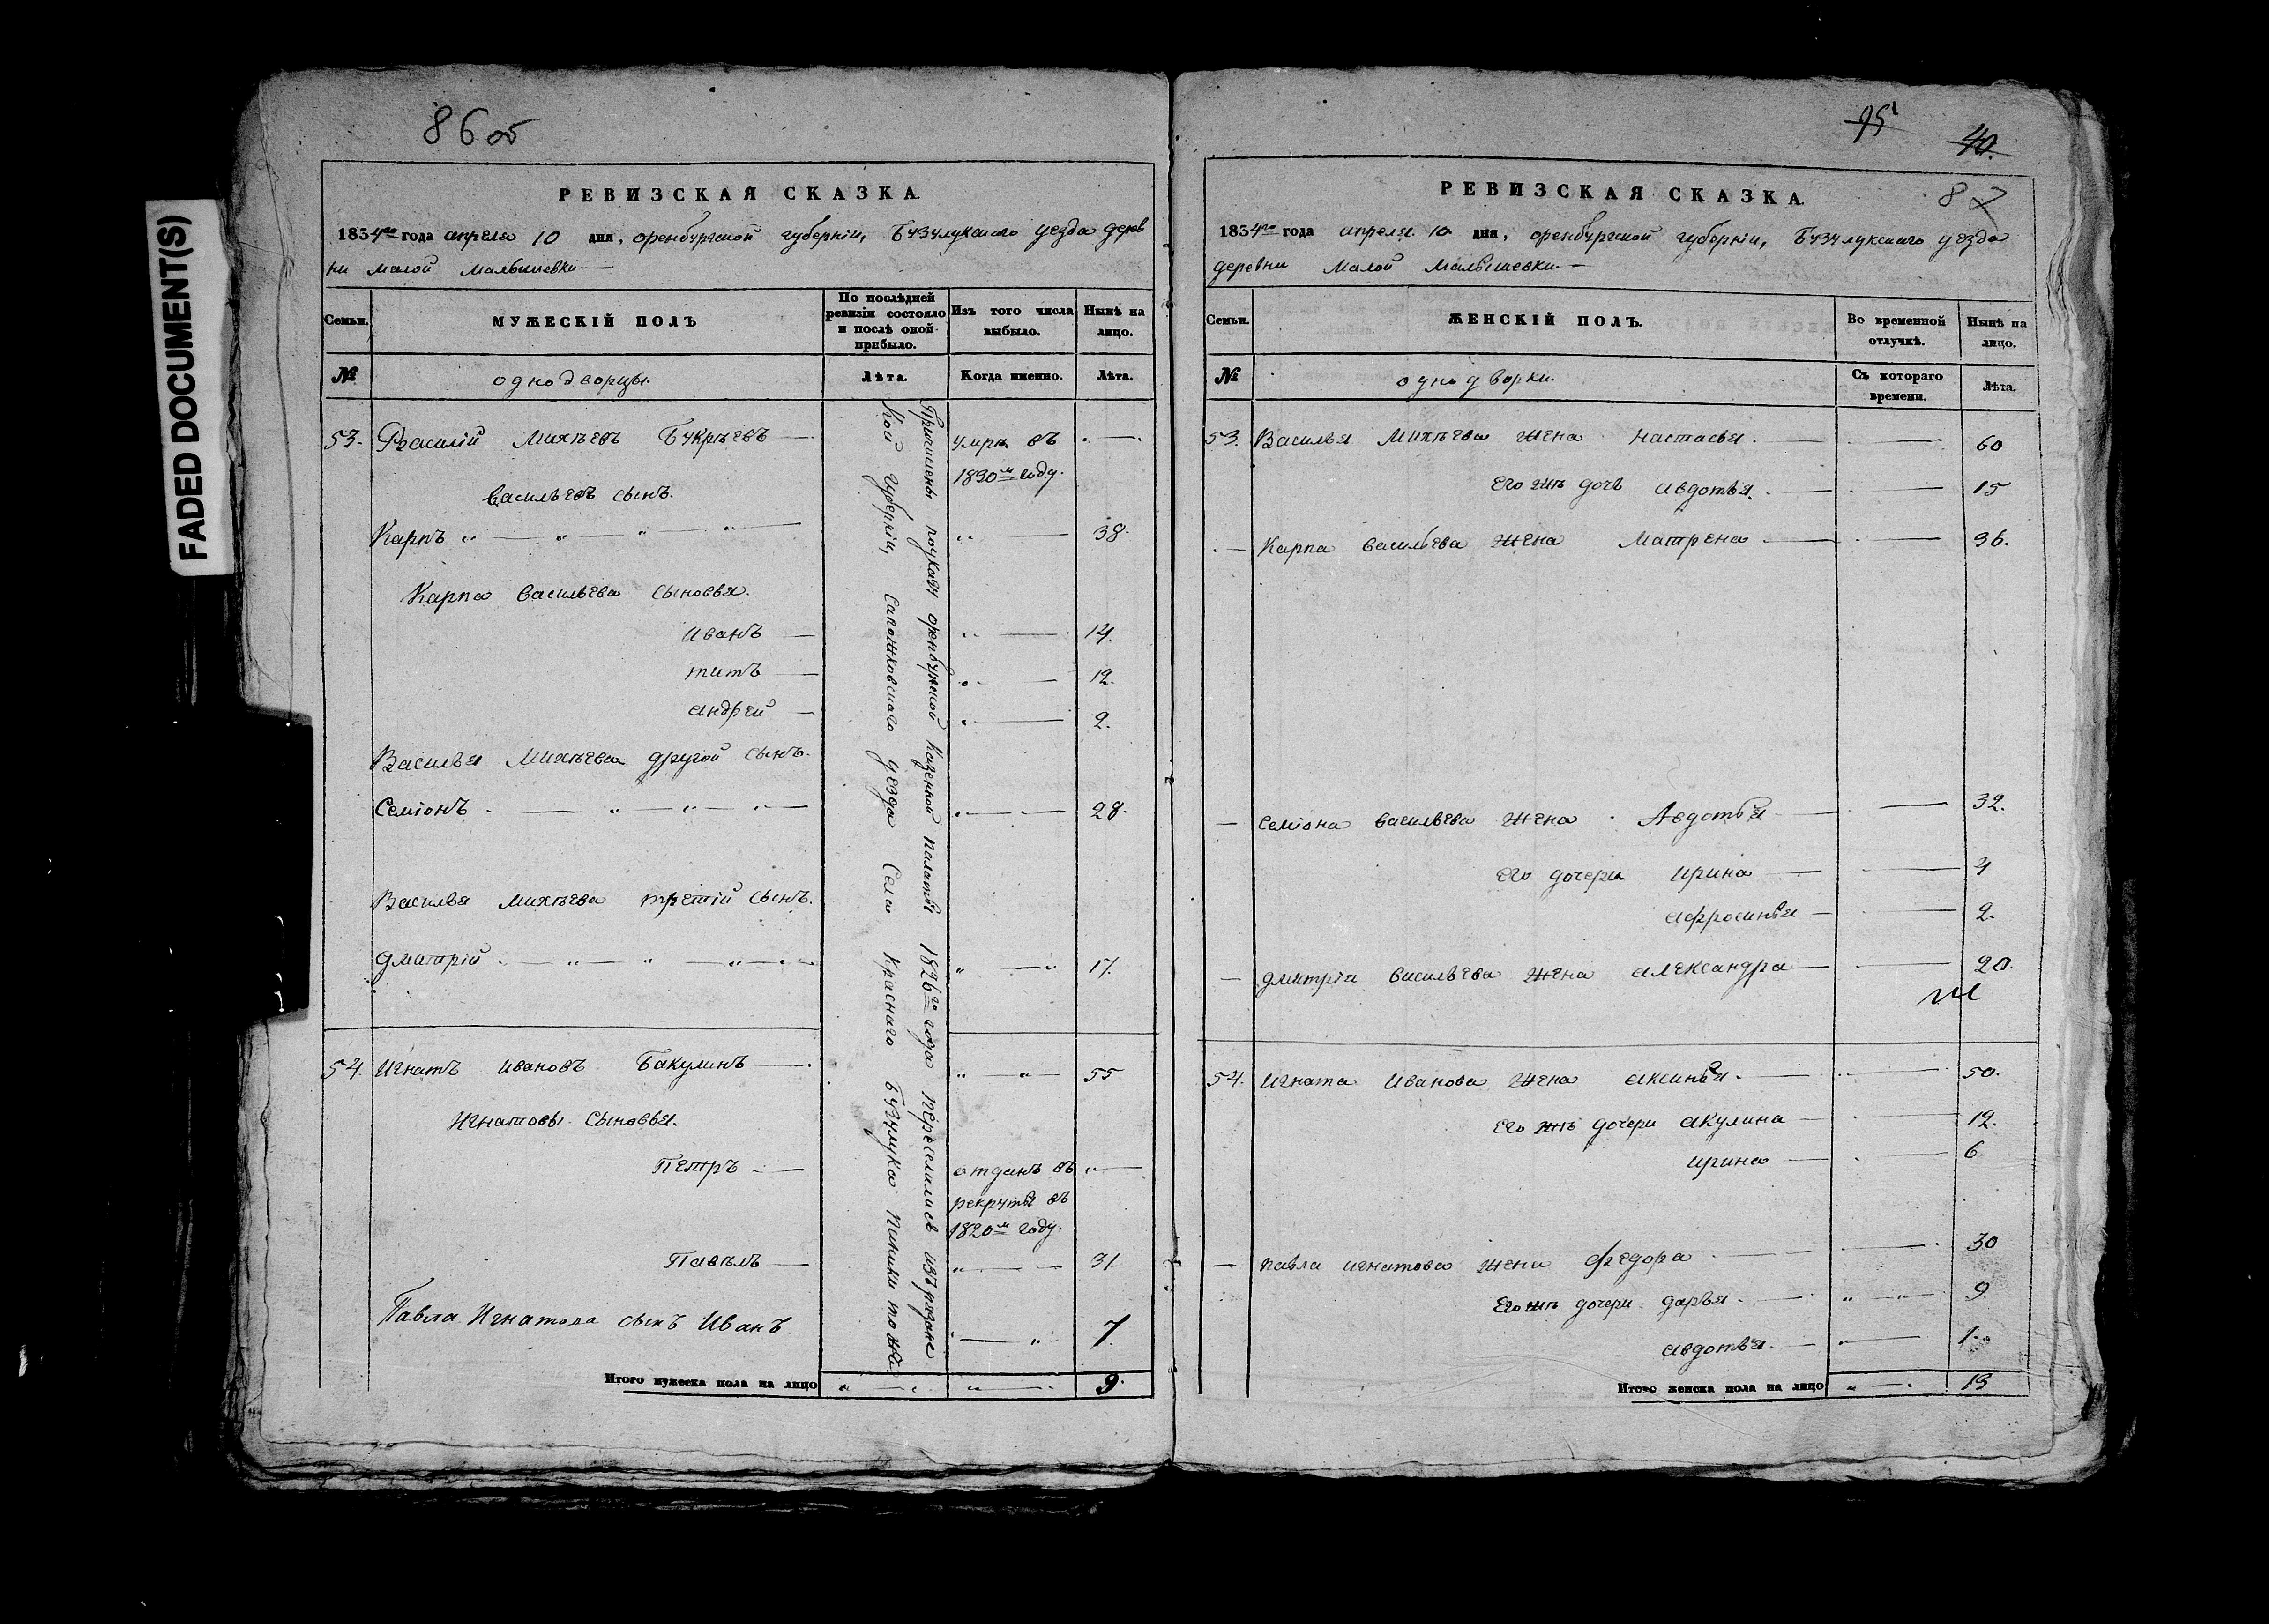 FADED DOCUMENT(S)
86 об
РЕВИЗСКАЯ СКАЗКА.
1834го года апреля 10 дня, оренбургской губерніи, Бузулукскаго уезда дерев
ни малой малышевки
Семьи.
МУЖЕСКІЙ ПОЛЪ
По послѣдней ревизіи состояло и послѣ оной прибыло.
Изъ того числа выбыло.
Нынѣ на лицо.
№
однодворцы.
Лѣта.
Когда именно.
Лѣта.
53. Василій Михѣевъ Букрѣевъ умре въ
1830м году.
васильевъ сынъ.
Карпъ 38.
Карпа васильева сыновья.
иванъ 14.
титъ 12.
андрей 2.
Василья Михѣева другой сынъ.
Семіонъ 28.
Василья михѣева третій сынъ.
дмитрій 17.
54. Игнатъ ивановъ Бакулинъ 55
Игнатовы сыновья.
Петръ отданъ въ
рекруты въ
1820м году.
Павѣлъ 31
Павла Игнатова сынъ Иванъ 7.
Причислены поуказу оренбургской казенной палаты 1826го года переселились изърязанс
кой губерніи, сапожковскаго уезда села Краснаго
Итого мужеска пола на лицо 9.
95
40.
87
РЕВИЗСКАЯ СКАЗКА.
1834го года апреля 10 дня, оренбургской губерніи, Бузулукскаго уезда
деревни малой малышевки.
Семьи.
ЖЕНСКІЙ ПОЛЪ.
Во временной отлучкѣ.
Нынѣ на лицо.
№
однодворки.
Съ котораго времени.
Лѣта.
53. Василья михѣева жена настасья 60
Его жъ дочь авдотья. 15
Карпа васильева жена матрена 36.
семіона васильева жена Авдотья 32.
его дочери ирина 4
афросинья 2.
дмитрія васильева жена александра 20.
54. игната иванова жена аксинья. 50.
Его жъ дочери акулина 12.
ирина 6
павла игнатова жена федора 30
Его жъ дочери дарья. 9
авдотья. 1.
Итого женска пола на лицо 13